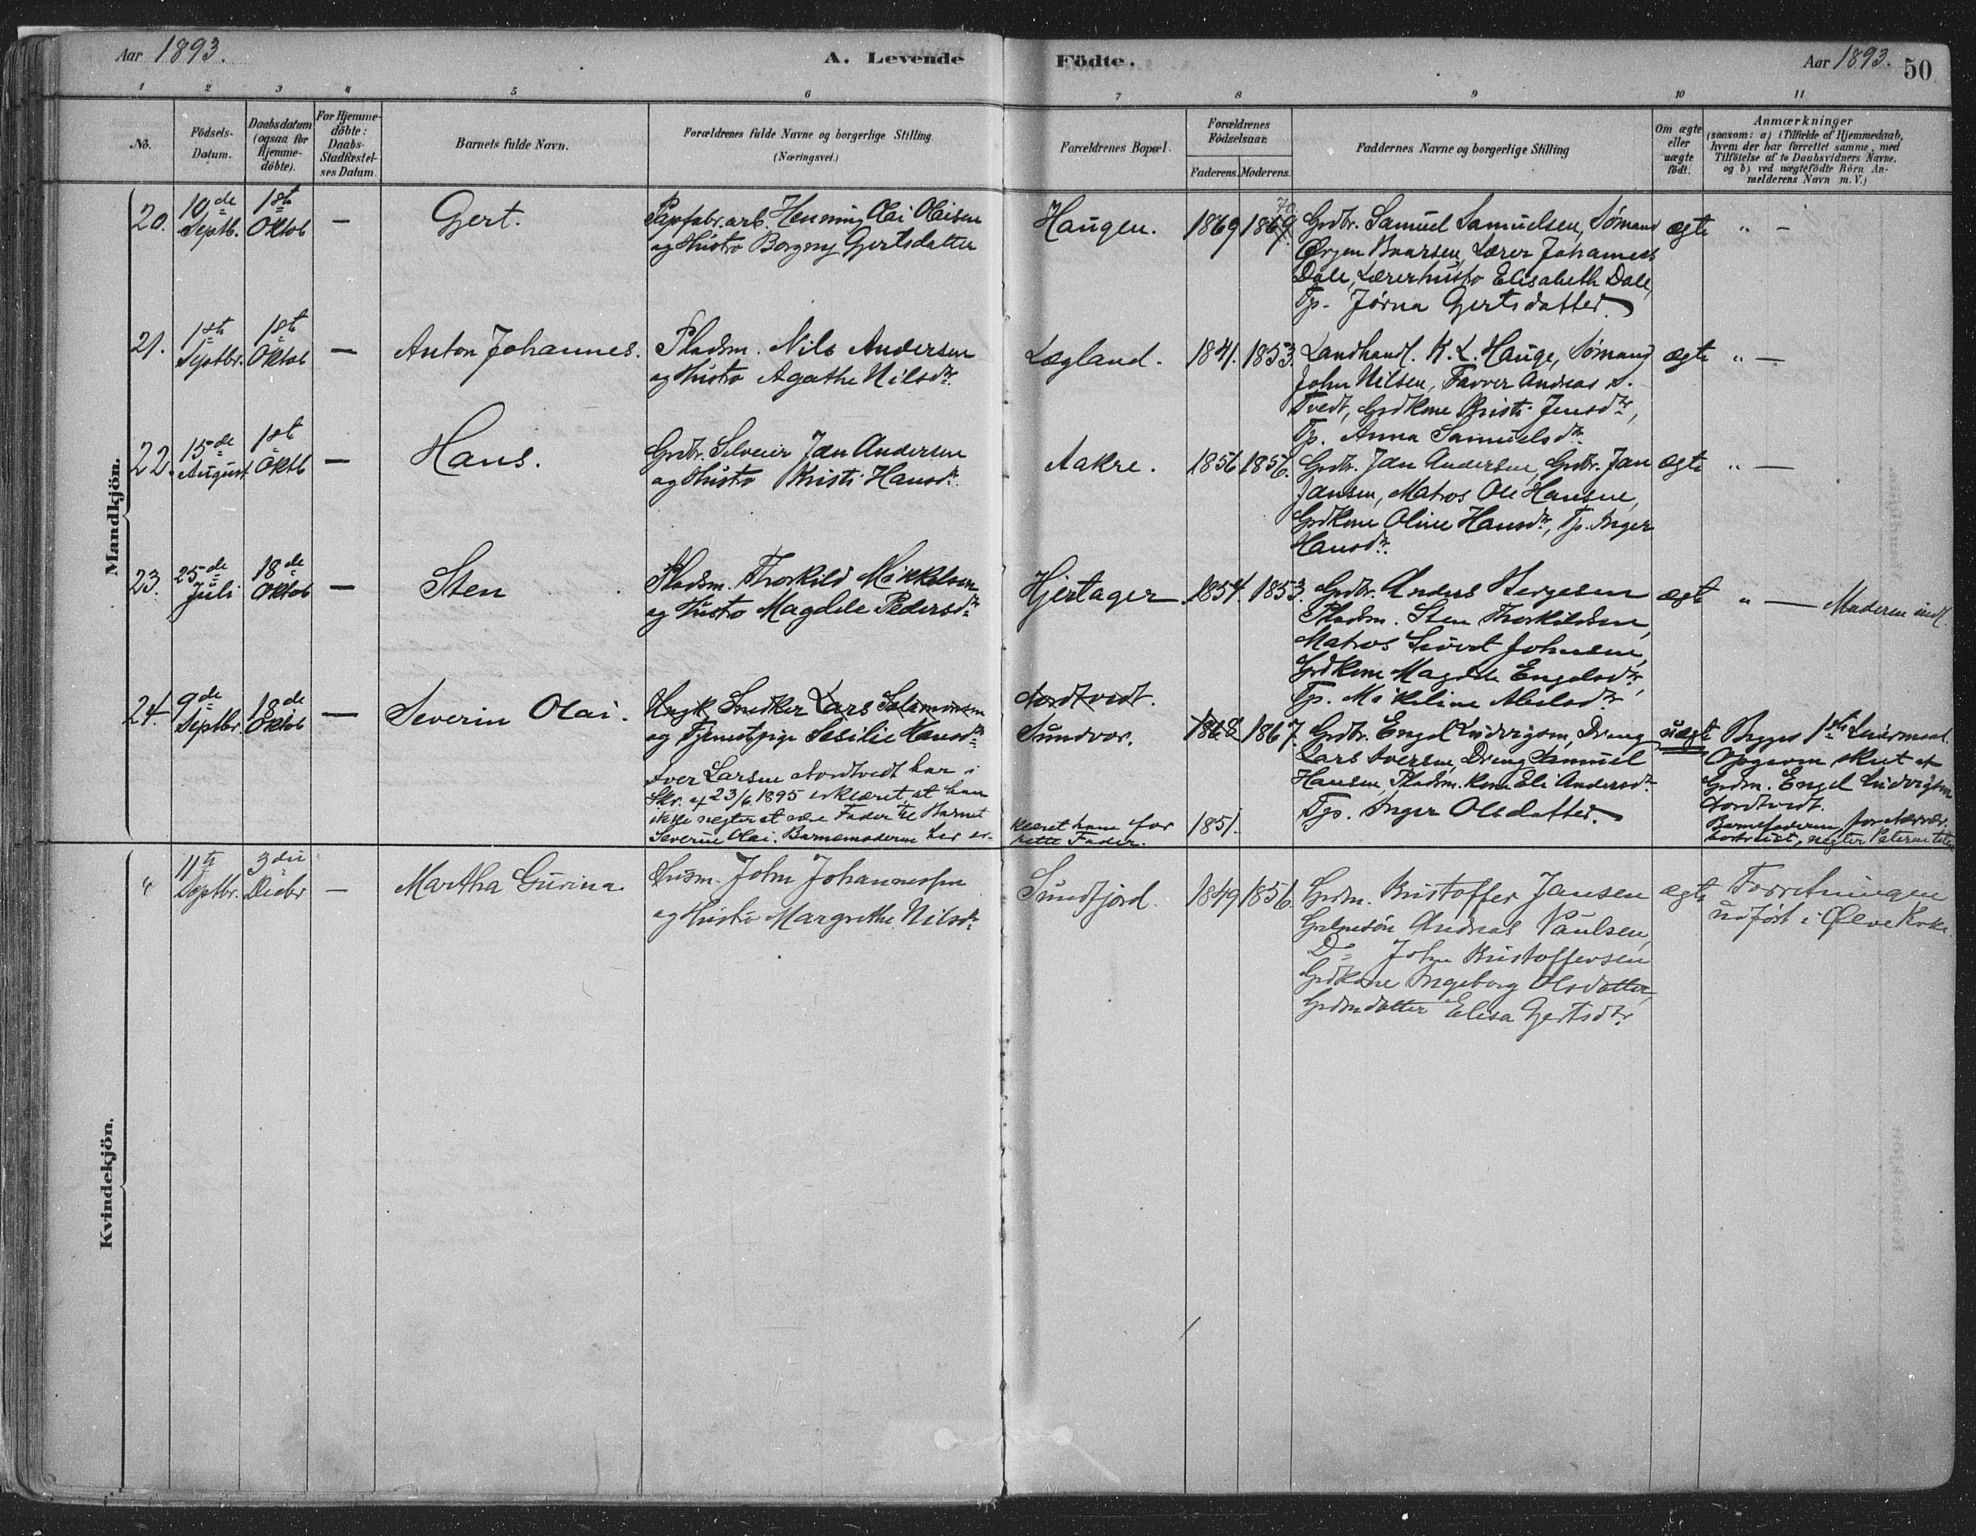 Aar 1893.
A. Levende
Födte.
Aar 1893.
50
1 2 3 4 5 6 7 8 9 10 11
No.
Födsels-
Datum.
Daabsdatum
(ogsaa for
Hjemme-
döbte).
For Hjemme-
döbte:
Daabs-
Stadfæstel-
ses Datum.
Barnets fulde Navn.
Forældrenes fulde Navne og borgerlige Stilling
(Næringsvei.)
Forældrenes Bopæl.
Forældrenes
Födselsaar.
Faderens. Moderens.
Faddernes Navne og borgerlige Stilling
Om ægte
eller
uægte
födt.
Anmærkninger
(saasom: a) i Tilfælde af Hjemmedaab,
hvem der har forrettet samme, med
Tilföielse af to Daabsvidners Navne,
og b) ved uægtefödte Börn An-
melderens Navn m. V.)
Mandkjön.
20.
10de
Septb.
1ste
Oktob
—
Gert.
Papfabr.arb. Henning Olai Olaisen
og Hustro Borgny Gertsdatter
Haugen.
1869
1869
70
Grdbr. Samuel Samuelsen, Sømand
Ørjen Baarsen, Lærer Johannes
Dale, Lærerhustro Elisabeth Dale,
Tp. Jørna Gertsdatter.
ægte
" —
21.
1ste
Septbr.
1ste
Oktob
—
Anton Johannes.
Pladsm. Nils Andersen
og Hustro Agathe Nilsdtr.
Lægland.
1841.
1853.
Landhandl. K. L. Hauge, Sømand
John Nilsen, Farver Andreas
Tvedt, Grdkone Kristi Jensdtr,
Tp. Anna Samuelsdtr.
ægte
" —
22.
15de
August
1ste
Oktb
—
Hans.
Grdbr. Selveier Jan Andersen
og Hustro Kristi Hansdtr.
Aakre.
1856
1856.
Grdbr. Jan Andersen, Grdbr. Jan
Jansen, Matros Ole Hansen,
Grdkone Oline Hansdtr, Tp. Inger
Hansdtr.
ægte
" —
23.
25de
Juli
18de
Oktob
—
Sten
Pladsm. Thorkild Mikkelsen
og Hustro Magdele Pedersdtr
Hjertager
1854.
1853.
Grdbr. Anders Børgesen
Pladsm. Sten Thorkildsen,
Matros Sivert Johnsen,
Grdkone Magdele Engelsdtr,
Tp. Mikeline Abelsdtr.
ægte
" — Moderen indl.
24.
9de
Septbr.
18de
Oktob
—
Severin Olai.
Ungk. Snedker Lars Salamonsen
og Tjenestpige Sesilie Hansdtr
Iver Larsen Nordtvedt har i
Skr. af 23/6 1895 erklæret, at han
ikke negter at være Fader til Barnet
Severin Olai. Barnemoderen har er-
klæret ham for
rette Fader.
Nordtvedt.
Sundvor.
1868
1851.
1867.
Grdbr. Engel Ludvigsen, Dreng
Lars Iversen, Dreng Samuel
Hansen, Pladsm. kone Eli Andersdtr.
Tp. Inger Olsdatter.
uægte
Begges 1ste Leiermaal.
Opgaven skut af
Grdm. Engel Ludvigsen
Nordtvedt.
Barnefaderen, for Nærvær.
bortreist, negter Paterniteten
Kvindekjön.
11te
Septbr.
3die
Decbr
—
Martha Gurina
Husm. John Johannessen
og Hustro Margrethe Nilsdtr
Sundfjord.
1849
1856.
Grdm. Kristoffer Jansen
Grdmsøn Andreas Paulsen,
Do John Kristoffersen
Grdkone Ingeborg Olsdatter,
Grdmdatter Elisa Gertsdtr.
ægte
Forretningen
udført i Ølve Kirke.